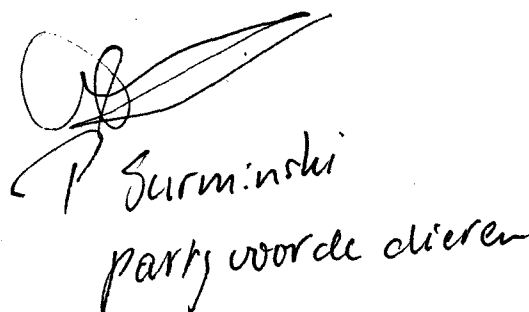 P Surminski
partij voor de dieren